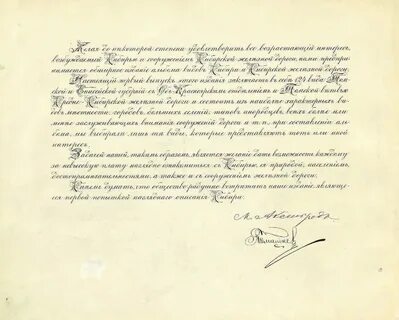 Желая до некоторой степени удовлетворить все возрастающiй интересъ,
возбуждаемый Сибирью и сооруженiемъ Сибирской железной дороги, нами предпри-
нимается обширное изданiе альбома видовъ Сибири и Сибирской железной дороги.
Настоящiй первый выпускъ этого изданiя заключаетъ въ себе 124 вида Том-
ской и Енисейской губернiй съ Обь-Красноярскимъ отделенiемъ и Томской ветвью
Средне-Сибирской железной дороги и состоитъ изъ наиболее характерныхъ ви-
довъ местности, городовъ, большихъ селенiй, типовъ инородцевъ, всехъ более или
менее заслуживающихъ вниманiя сооруженiй дороги и т. п. при составленiи аль-
бома, мы выбирали лишь те виды, которые представляютъ тотъ или иной
интересъ.
Задачей нашей, такимъ образомъ, является желанiе дать возможность каждому
за невысокую плату наглядно ознакомиться съ Сибирью, ея природой, населенiемъ,
достопримечательностями, а также и съ сооруженiемъ железной дороги.
Смеемъ думать, что общество радушно встретитъ наше изданiе, являюще-
еся первой попыткой нагляднаго описанiя Сибири.
М. Аксельродъ